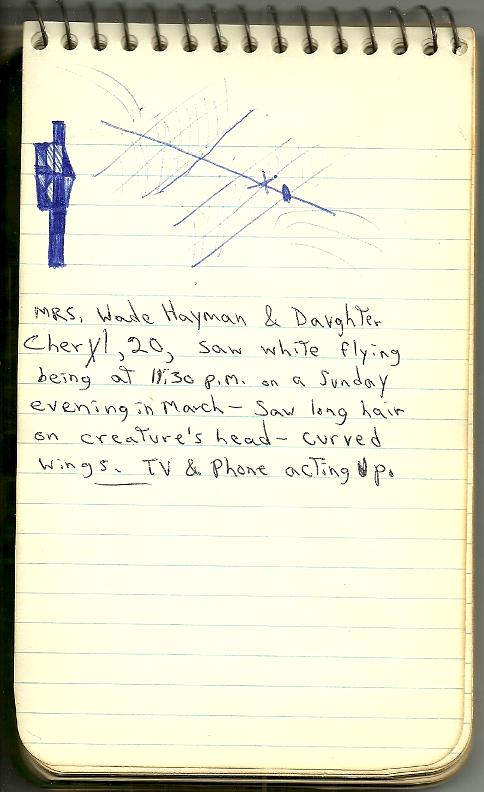 MRS. Wade Hayman & Daughter
Cheryl, 20, saw white flying
being at 11:30 p.m. on a Sunday
evening in March - Saw long hair
on creature's head - curved
wings. TV & Phone acting Up.